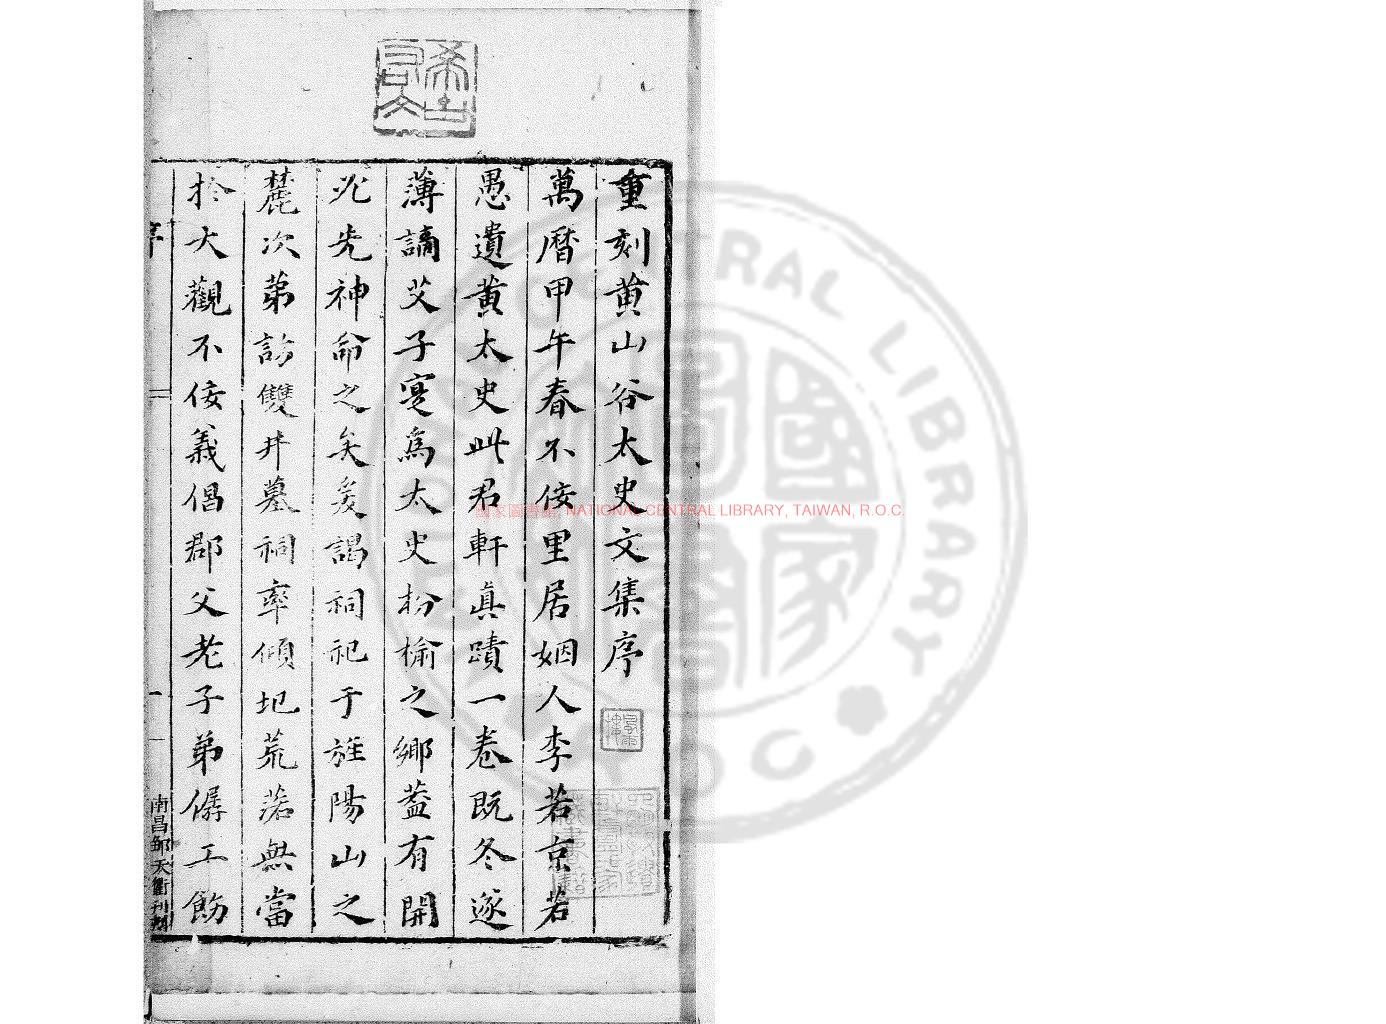 重刻黄山谷太史文集序
萬曆甲午春不佞里居姻人李若京若
愚遺黄太史此君軒真蹟一卷既冬遂
薄謫艾子寔爲太史枌榆之鄉葢有開
必先神命之矣爰謁祠祀于旌陽山之
麓次第訪雙井墓祠率傾圯荒落無當
於大觀不佞義倡郡父老子弟僝工飭
序
一
南昌鄒天衢刊
國家圖書館, NATIONAL CENTRAL LIBRARY, TAIWAN, R.O.C.